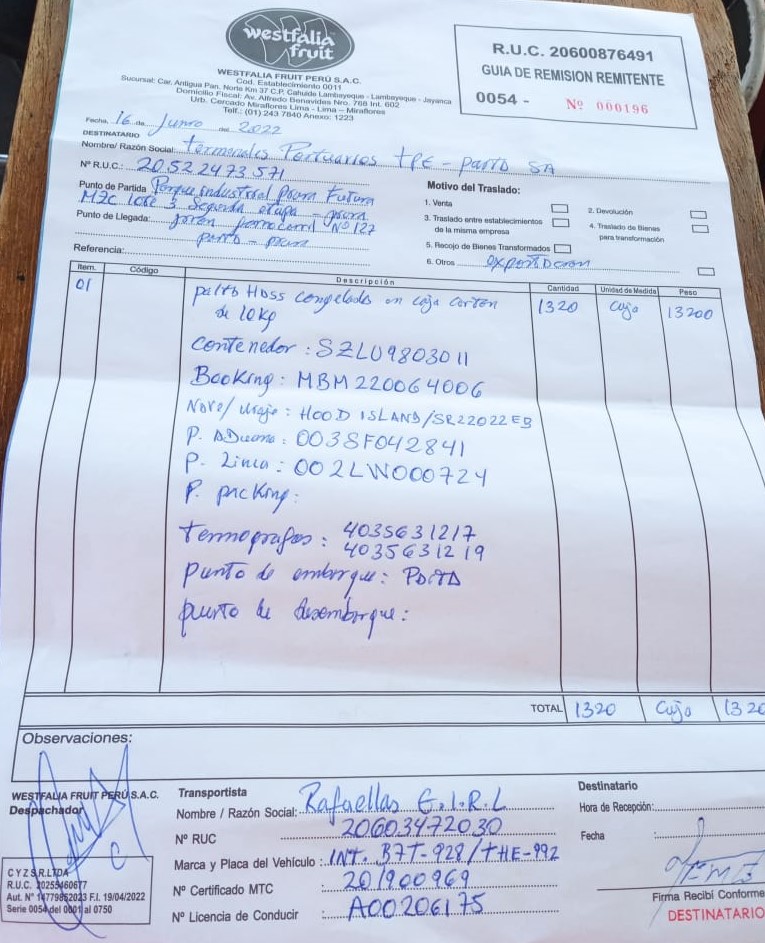 westfalia
fruit
WESTFALIA FRUIT PERÚ S.A.C.
Cod. Establecimiento 0011
Sucursal: Car. Antigua Pan. Norte Km 37 C.P. Cahuide Lambayeque - Lambayeque - Jayanca
Domicilio Fiscal: Av. Alfredo Benavides Nro. 768 Int. 602
Urb. Cercado Miraflores Lima - Lima - Miraflores
Telf.: (01) 243 7840 Anexo: 1223
R.U.C. 20600876491
GUIA DE REMISION REMITENTE
0054 - Nº 000196
Fecha, 16 de Junio del 2022
DESTINATARIO
Nombre/ Razón Social: Terminales Portuarios TPE - Paita SA
Nº R.U.C.: 20522473571
Punto de Partida Parque industrial Piura Futura
MZC lote 3 Segunda etapa - piura
Punto de Llegada: jirón ferrocarril Nº 127
paita - piura
Referencia:
Motivo del Traslado:
1. Venta
2. Devolución
3. Traslado entre establecimientos de la misma empresa
4. Traslado de Bienes para transformación
5. Recojo de Bienes Transformados
6. Otros exportacion
Item. Código Descripción Cantidad Unidad de Medida Peso
01 palta Hass congelada en caja carton 1320 Caja 13200
de 10Kg
Contenedor: SZLU9803011
Booking: MBM220064006
Nave/ viaje: HOOD ISLAND/SR22022EB
P. Aduana: 003SF042841
P. Linea: 002LW000724
P. packing:
Termografos: 4035631217
4035631219
punto de embarque: Paita
puerto de desembarque:
TOTAL 1320 Caja 1320
Observaciones:
WESTFALIA FRUIT PERÚ S.A.C.
Despachador
CYZ S.R.LTDA
R.U.C. 20255460677
Aut. Nº 14779852023 F.I. 19/04/2022
Serie 0054 del 0001 al 0750
Transportista
Nombre / Razón Social: Rafaellas E.I.R.L
Nº RUC 20603472030
Marca y Placa del Vehículo: INT. B7T-928/THE-992
Nº Certificado MTC : 201900969
Nº Licencia de Conducir : A00206175
Destinatario
Hora de Recepción:
Fecha :
Firma Recibí Conforme
DESTINATARIO